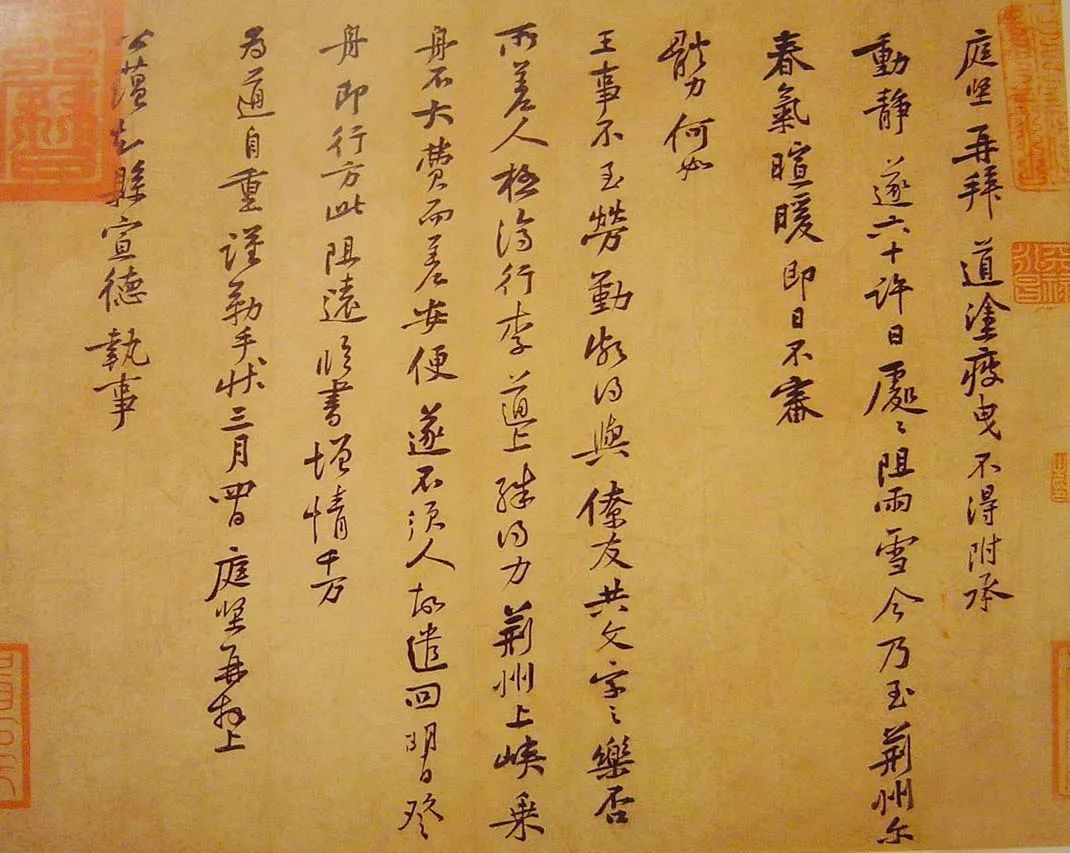 庭坚再拜 道塗疲曳不得附承
動靜 遂六十許日處〻阻雨雪今乃至荊州尔
春氣暄暖即日不審
體力何如
王事不至勞勤頗得與僚友共文字之樂否
所差人極濟行李道上殊得力荊州上峽乘
舟不大費而差安便遂不須人故遣回明日登
舟即行方此阻遠臨書增情千万
為道自重謹勒手狀三月四日庭坚再拜上
公蘊知縣宣德執事